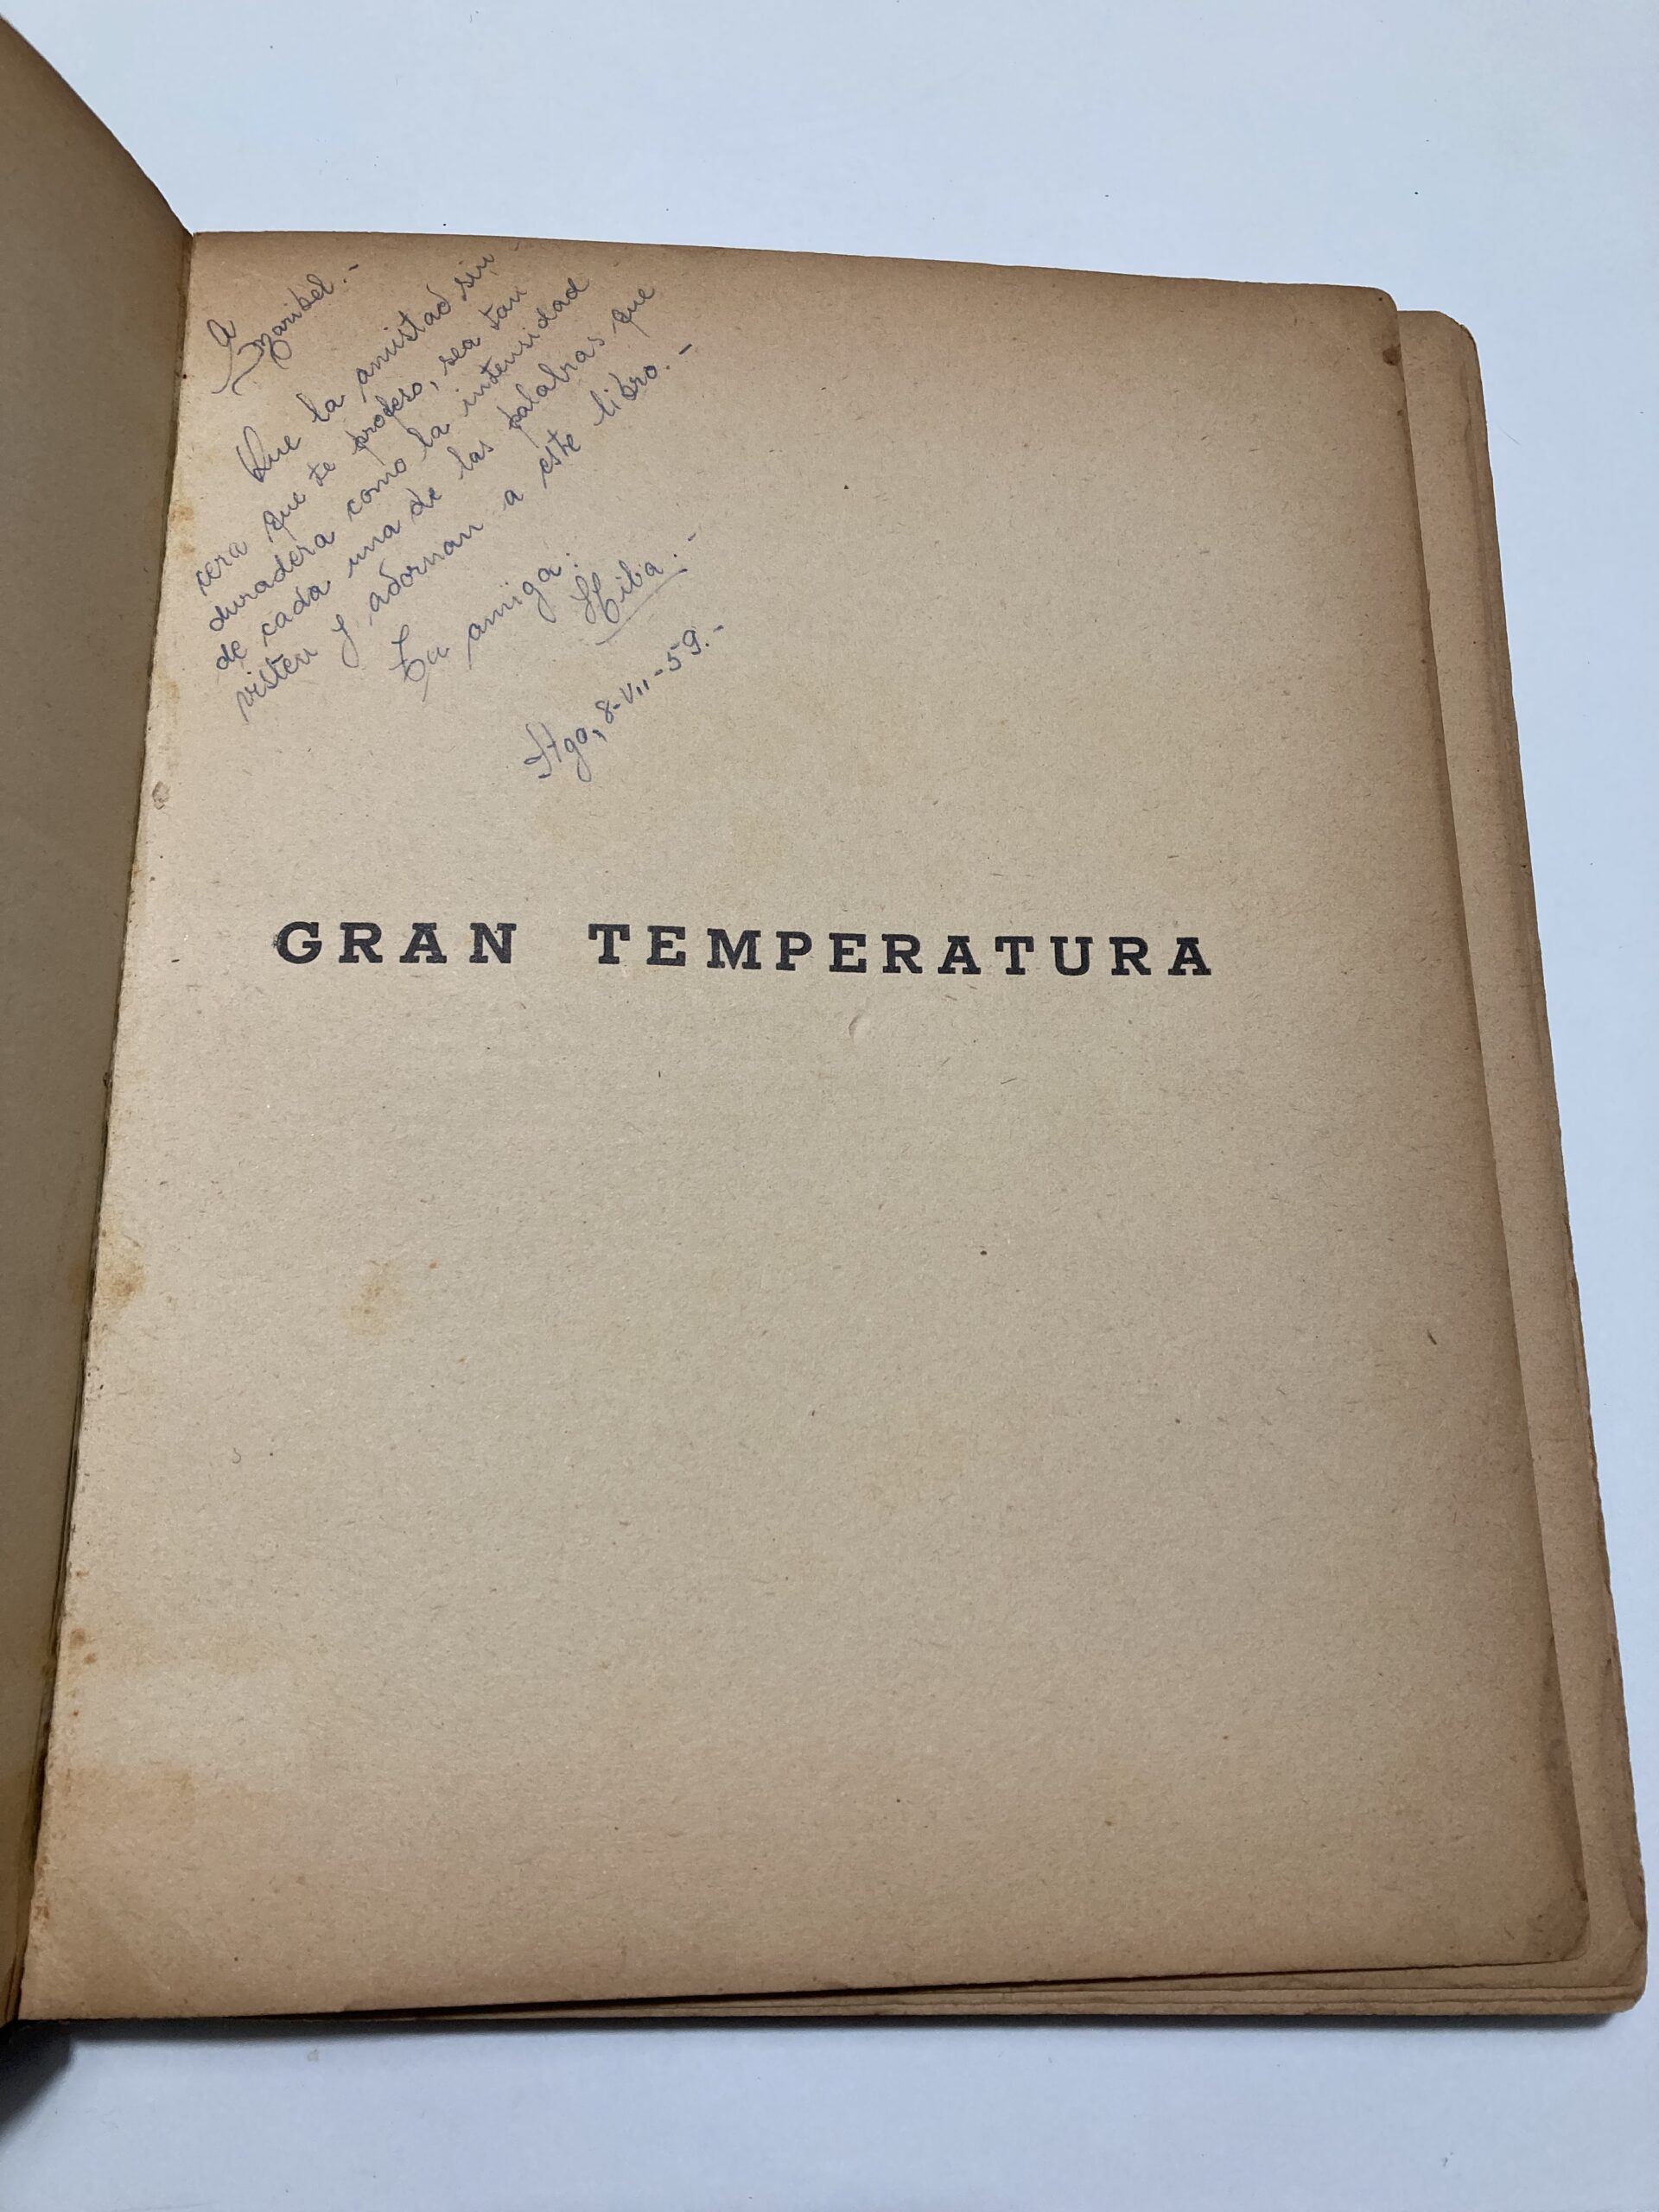 A
Maribel.-
Que la amistad sin
cera que te profeso, sea tan
duradera como la intensidad
de cada una de las palabras que
visten y adornan a este libro.-
Tu amiga:
Stgo, 8-VII-59.-
GRAN TEMPERATURA